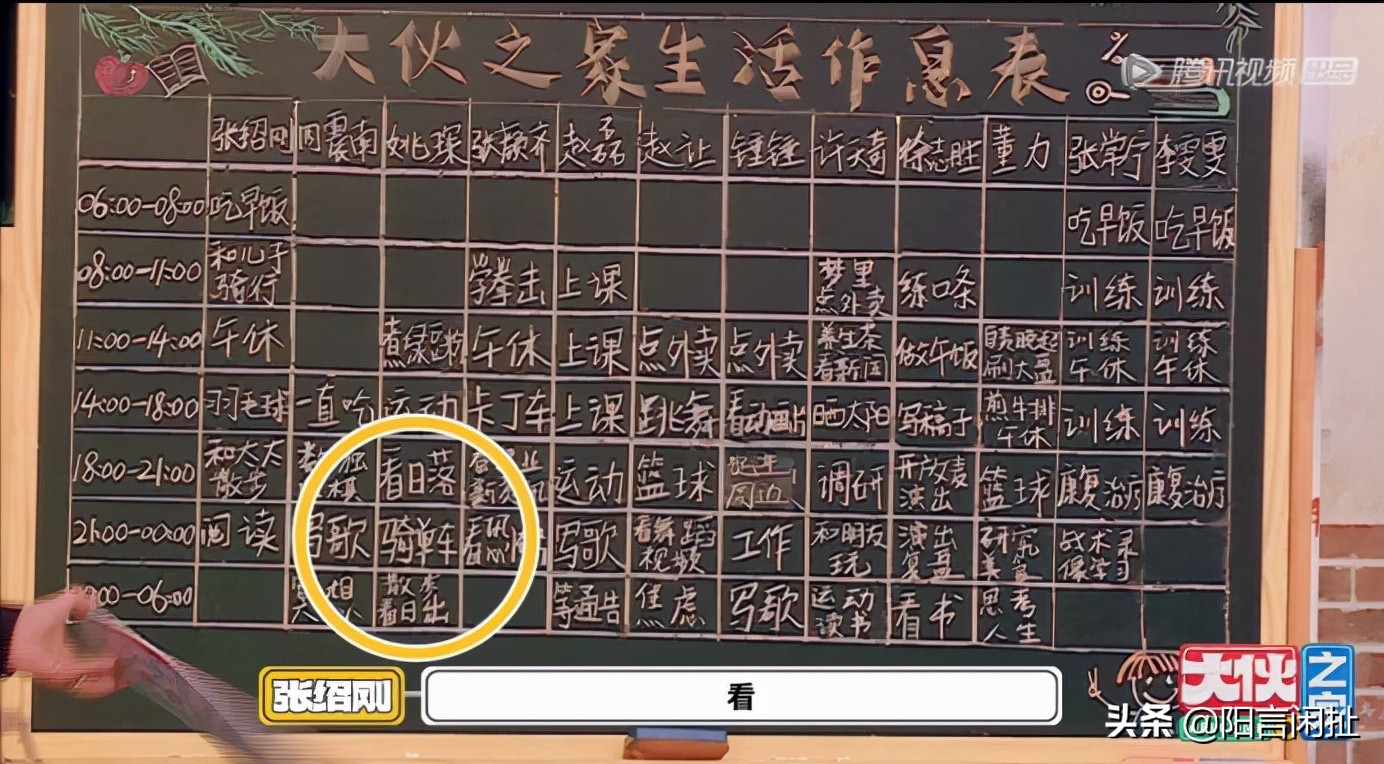 大伙之家生活作息表
腾讯视频 出品
张绍刚 周震南 姚琛 张颜齐 赵磊 赵让 锤锤 许天奇 徐志胜 董力 张常宁 李雯雯
06:00-08:00 吃早饭 吃早饭 吃早饭
08:00-11:00 和儿子骑行 学拳击 上课 梦里点外卖 练口条 训练 训练
11:00-14:00 午休 午休 上课 点外卖 点外卖 养生茶看新闻 做午饭 自责晚起刷大盘 训练午休 训练午休
14:00-18:00 羽毛球 一直吃 运动 卡丁车 上课 跳舞 看动画片 晒太阳 写稿子 煎牛排午休 训练 训练
18:00-21:00 和太太散步 看日落 运动 篮球 周边 调研 开放麦演出 篮球 康复治疗 康复治疗
21:00-00:00 阅读 写歌 骑单车 写歌 看舞蹈视频 工作 和朋友玩 演出复盘 研究美食 战术录像学习
00-06:00 散步看日出 等通告 焦虑 写歌 运动读书 看书 思考人生
张绍刚
看
大伙之家
头条 @阳言闲扯